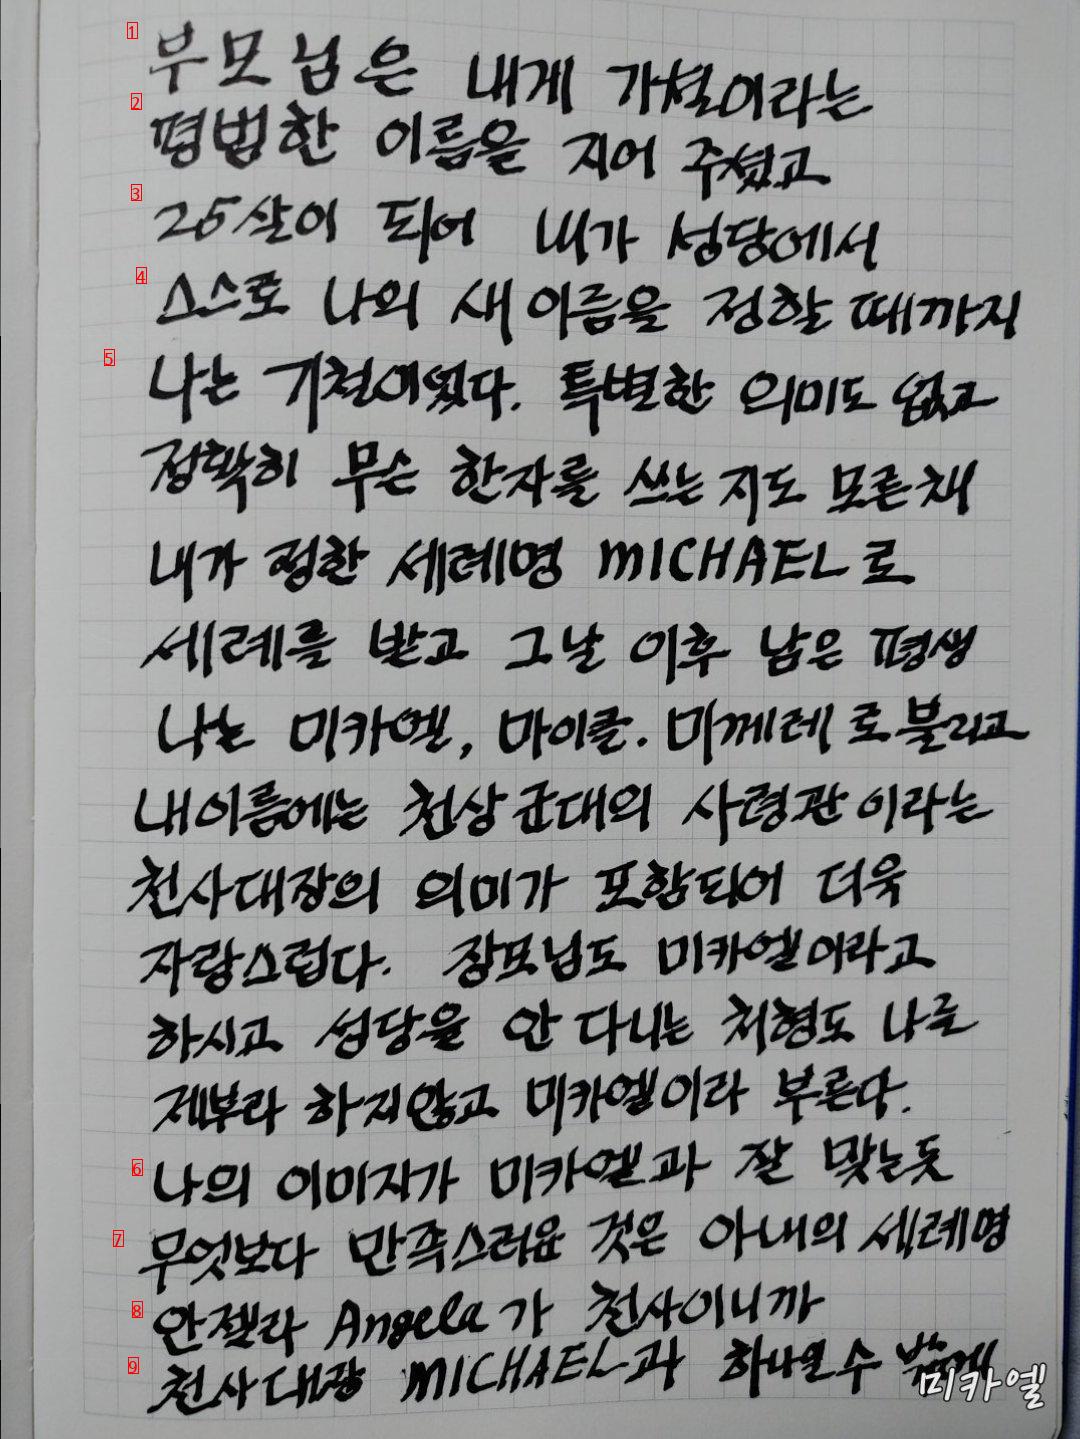 부모님은 내게 기철이라는
평범한 이름을 지어 주셨고
25살이 되어 내가 성당에서
스스로 나의 새 이름을 정할 때까지
나는 기철이었다. 특별한 의미도 없고
정확히 무슨 한자를 쓰는 지도 모른채
내가 정한 세례명 MICHAEL로
세례를 받고 그날 이후 남은 평생
나는 미카엘, 마이클. 미께레로 불리고
내이름에는 천상군대의 사령관이라는
천사대장의 의미가 포함되어 더욱
자랑스럽다. 장모님도 미카엘이라고
하시고 성당을 안 다니는 처형도 나를
제부라 하지않고 미카엘이라 부른다.
나의 이미지가 미카엘과 잘 맞는듯
무엇보다 만족스러운 것은 아내의 세례명
안젤라 Angela가 천사이니까
천사대장 MICHAEL과 하나일 수 밖에
미카엘